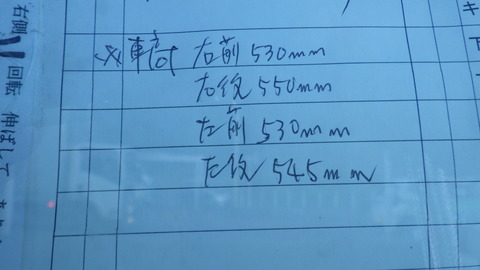 ※車高 右前 530mm
右後 550mm
左前 530mm
左後 545mm
右側
回転 伸ばして